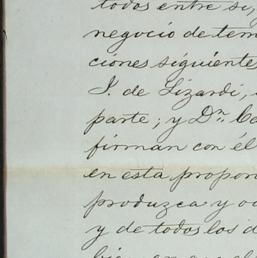 todos entre si,
negocio de tem
ciones siguientes
J. de Lizardi,
parte; y Dn. Ca
firman con él
en esta propor
produzca y oc
y de todos los d